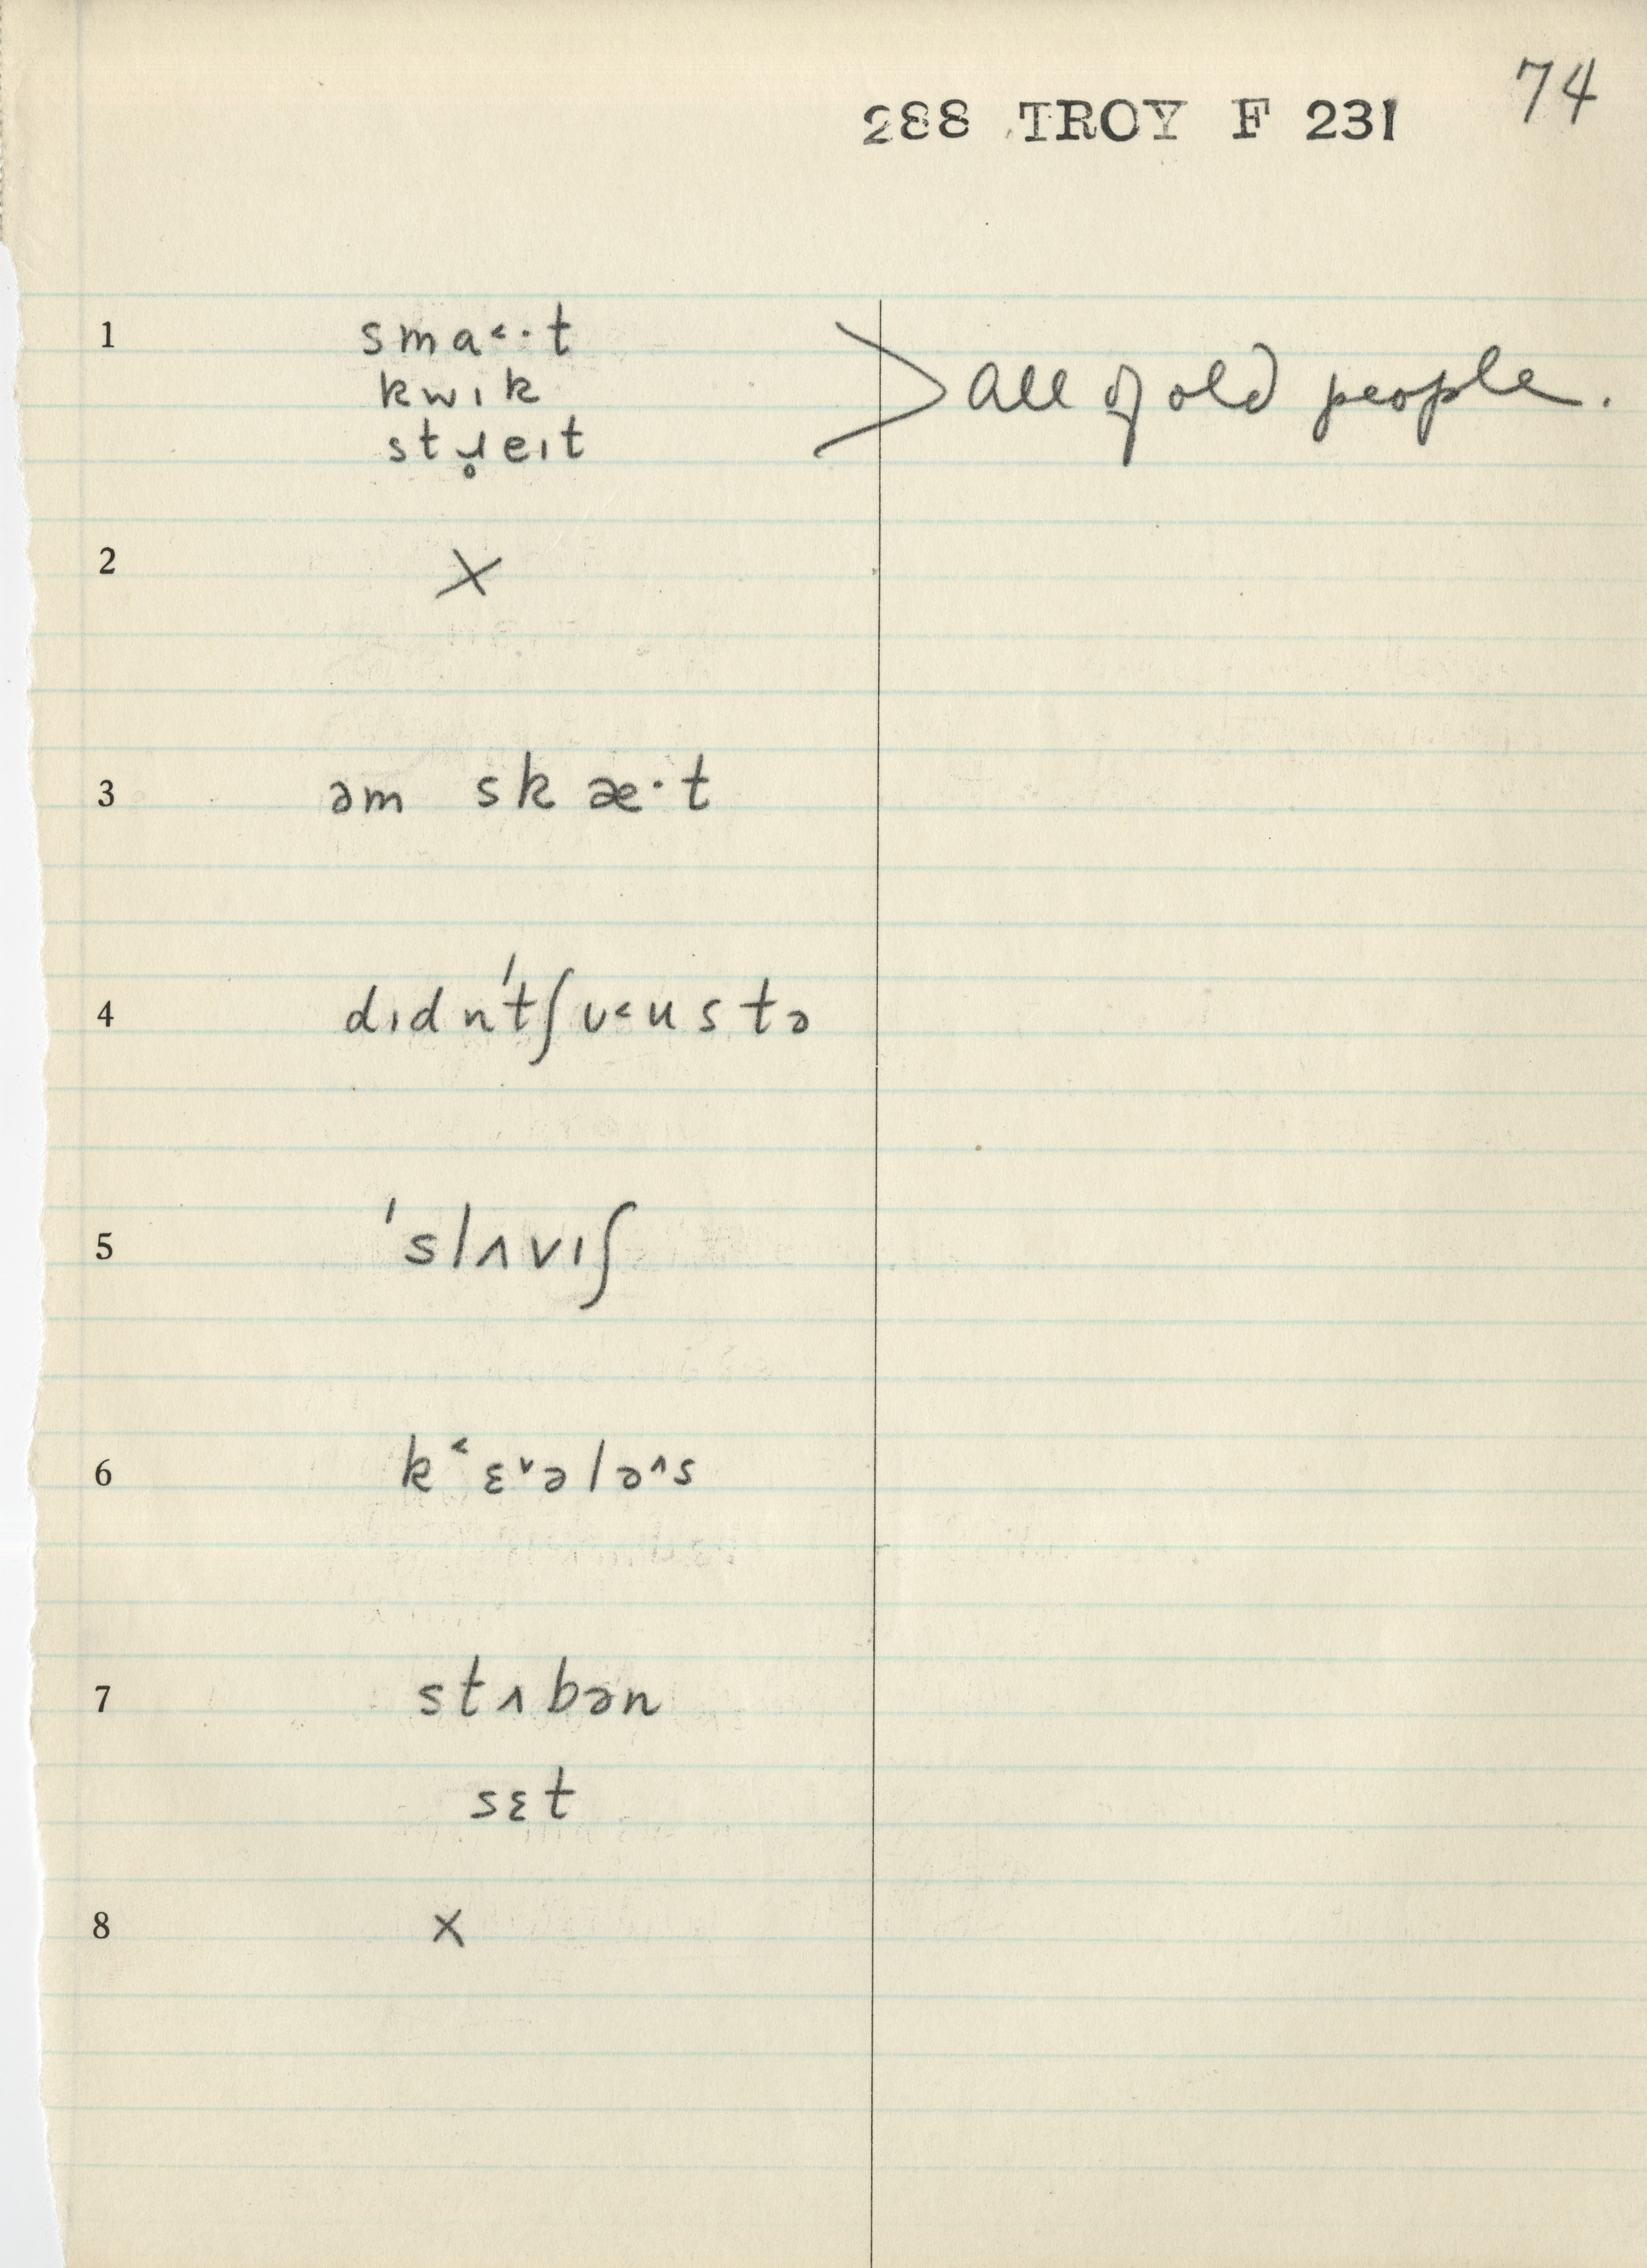 74
288 TROY F 231
1 sma˂·t
kwɪk
stɹ̥eɪt
> All of old people.
2 X
3 əm skæ·t
4 dɪdn'tʃʊ˂ustə
5 'slʌvɪʃ
6 k˂ɛ˅ələ˄s
7 stʌbən
sɛt
8 X